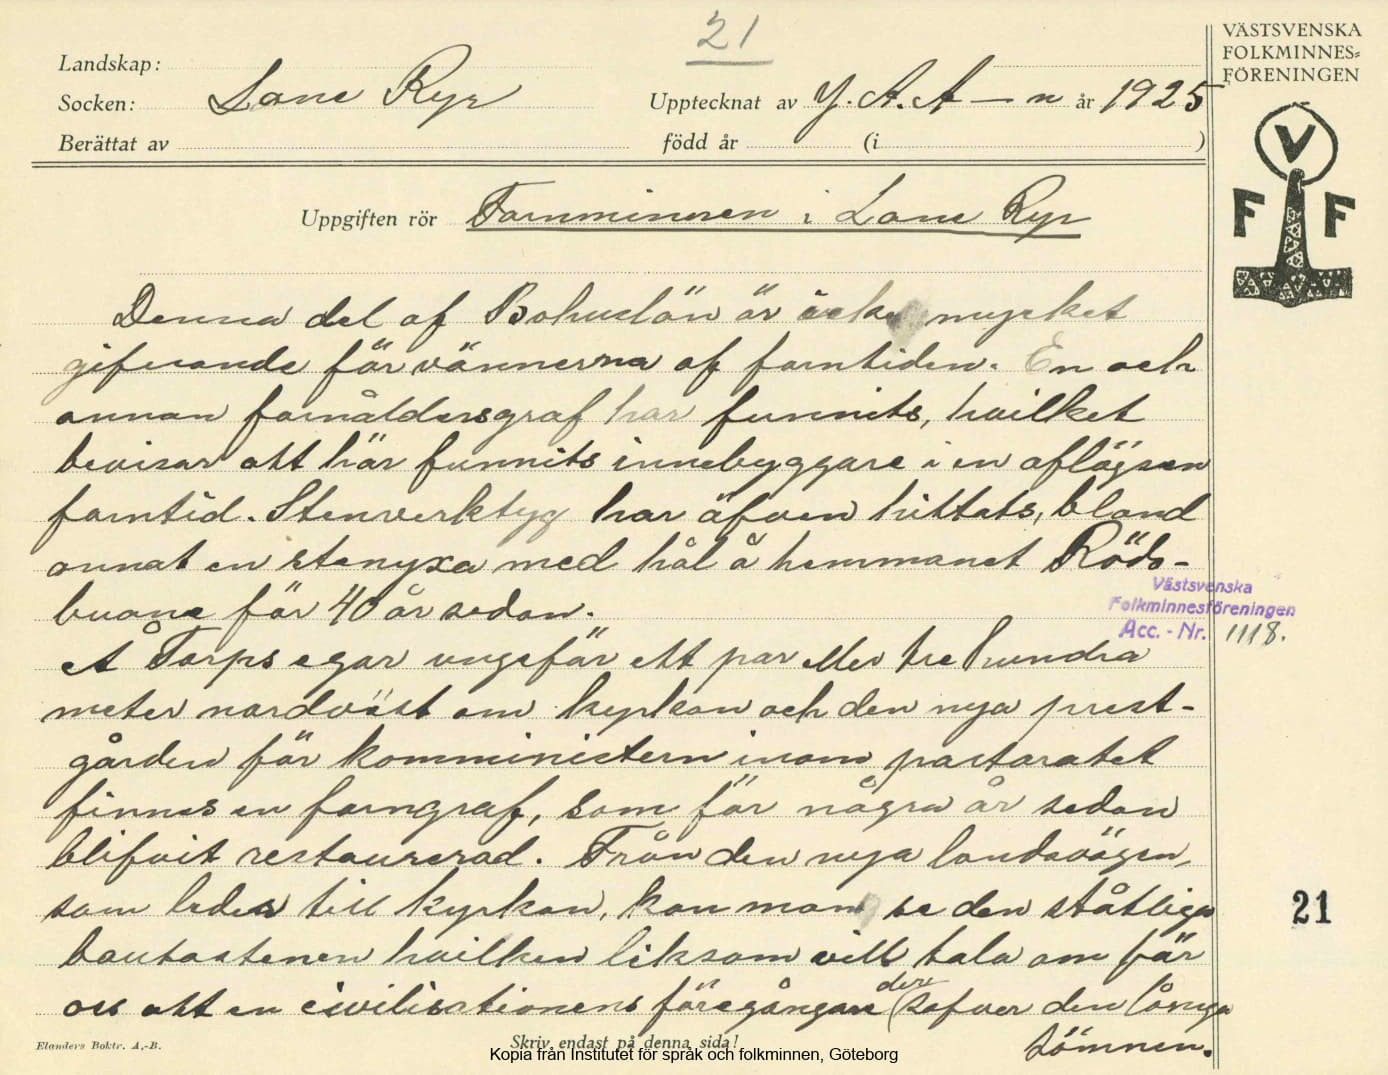 21
VÄSTSVENSKA
FOLKMINNES=
FÖRENINGEN
Landskap:
Socken: Lane Ryr
Upptecknat av J. A. A—n år 1925
Berättat av
född år (i )
V
F F
Uppgiften rör Fornminnen i Lane Ryr
Denna del af Bohuslän är icke mycket
gifvande för vännerna af forntiden. En och
annan fornåldersgraf har funnits, hvilket
bevisar att här funnits innebyggare i en aflägsen
forntid. Stenverktyg har äfven hittats, bland
annat en stenyxa med hål å hemmanet Röds-
buane för 40 år sedan.
Västsvenska
Folkminnesföreningen
Acc. - Nr. 1118.
Å Torps egor ungefär ett par eller tre hundra
meter nordväst om kyrkan och den nya prest-
gården för komministern inom pastoratet
finnes en forngraf, som för några år sedan
blifvit restaurerad. Från den nya landsvägen,
som leder till kyrkan, kan man se den ståtliga
bautastenen hvilken liksom vill tala om för
oss att en civilisationens föregångare der sofver den långa
sömnen.
21
Elanders Boktr. A.-B.
Skriv endast på denna sida!
Kopia från Institutet för språk och folkminnen, Göteborg